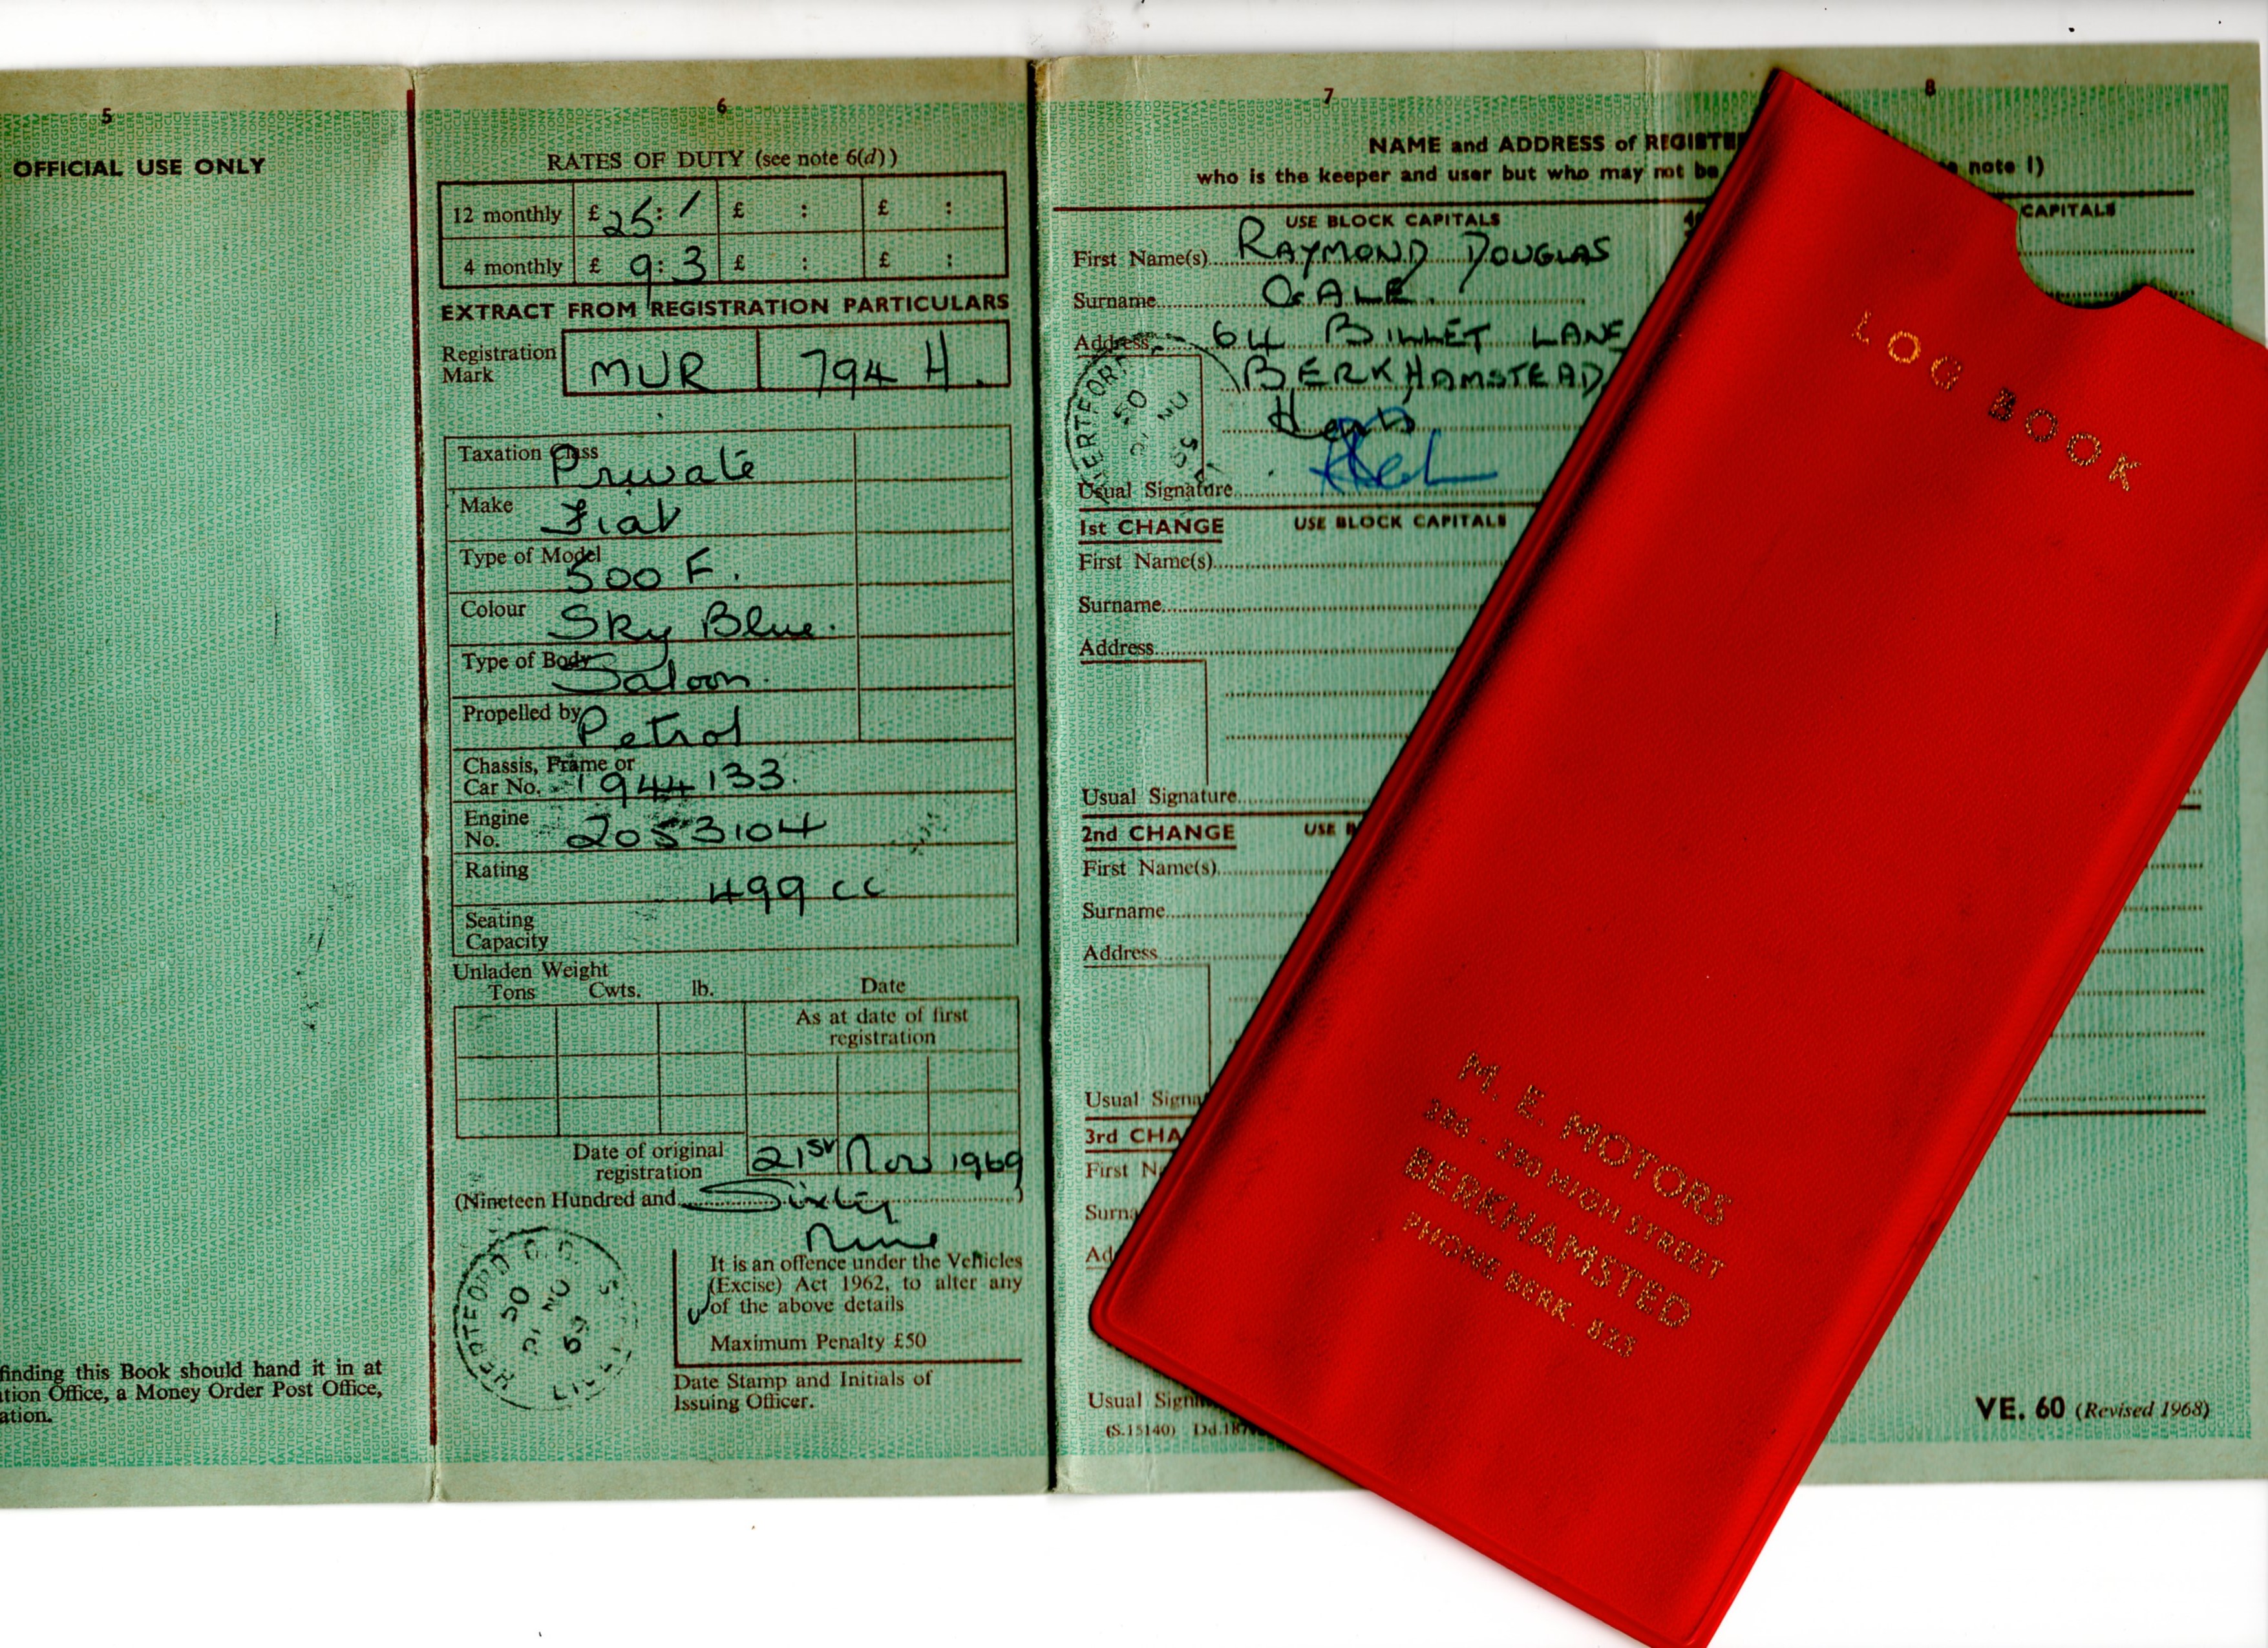 5
OFFICIAL USE ONLY
finding this Book should hand it in at
tion Office, a Money Order Post Office,
ation.
6
RATES OF DUTY (see note 6(d))
12 monthly £ 25: / £ : £ :
4 monthly £ 9:3 £ : £ :
EXTRACT FROM REGISTRATION PARTICULARS
Registration
Mark MUR 794 H.
Taxation Class Private
Make Fiat
Type of Model 500 F.
Colour Sky Blue.
Type of Body Saloon.
Propelled by Petrol
Chassis, Frame or
Car No. 1944133.
Engine
No. 2053104
Rating 499 cc
Seating
Capacity
Unladen Weight
Tons Cwts. lb. Date
As at date of first
registration
Date of original
registration 21st Nov 1969
(Nineteen Hundred and Sixty
Nine
HERTFORD
It is an offence under the Vehicles
(Excise) Act 1962, to alter any
of the above details
Maximum Penalty £50
Date Stamp and Initials of
Issuing Officer.
7
NAME and ADDRESS of REGISTE
who is the keeper and user but who may not be
USE BLOCK CAPITALS
First Name(s) RAYMOND DOUGLAS
Surname GALE.
Address 64 BILLET LANE
BERKHAMSTEAD,
Herts
HERTFOR
Usual Signature
1st CHANGE USE BLOCK CAPITALS
First Name(s)
Surname
Address
Usual Signature
2nd CHANGE USE B
First Name(s)
Surname
Address
Usual Signa
3rd CHA
First N
Surna
Ad
Usual Sign
(S.15140) Dd.187
8
note 1)
CAPITALS
VE. 60 (Revised 1968)
LOG BOOK
M. E. MOTORS
286 - 290 HIGH STREET
BERKHAMSTED
PHONE BERK. 823